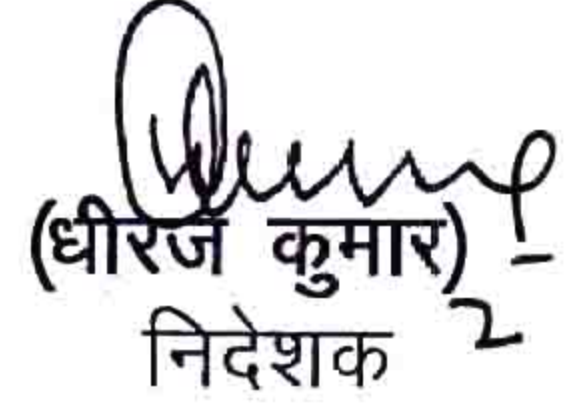 (धीरज कुमार)
निदेशक